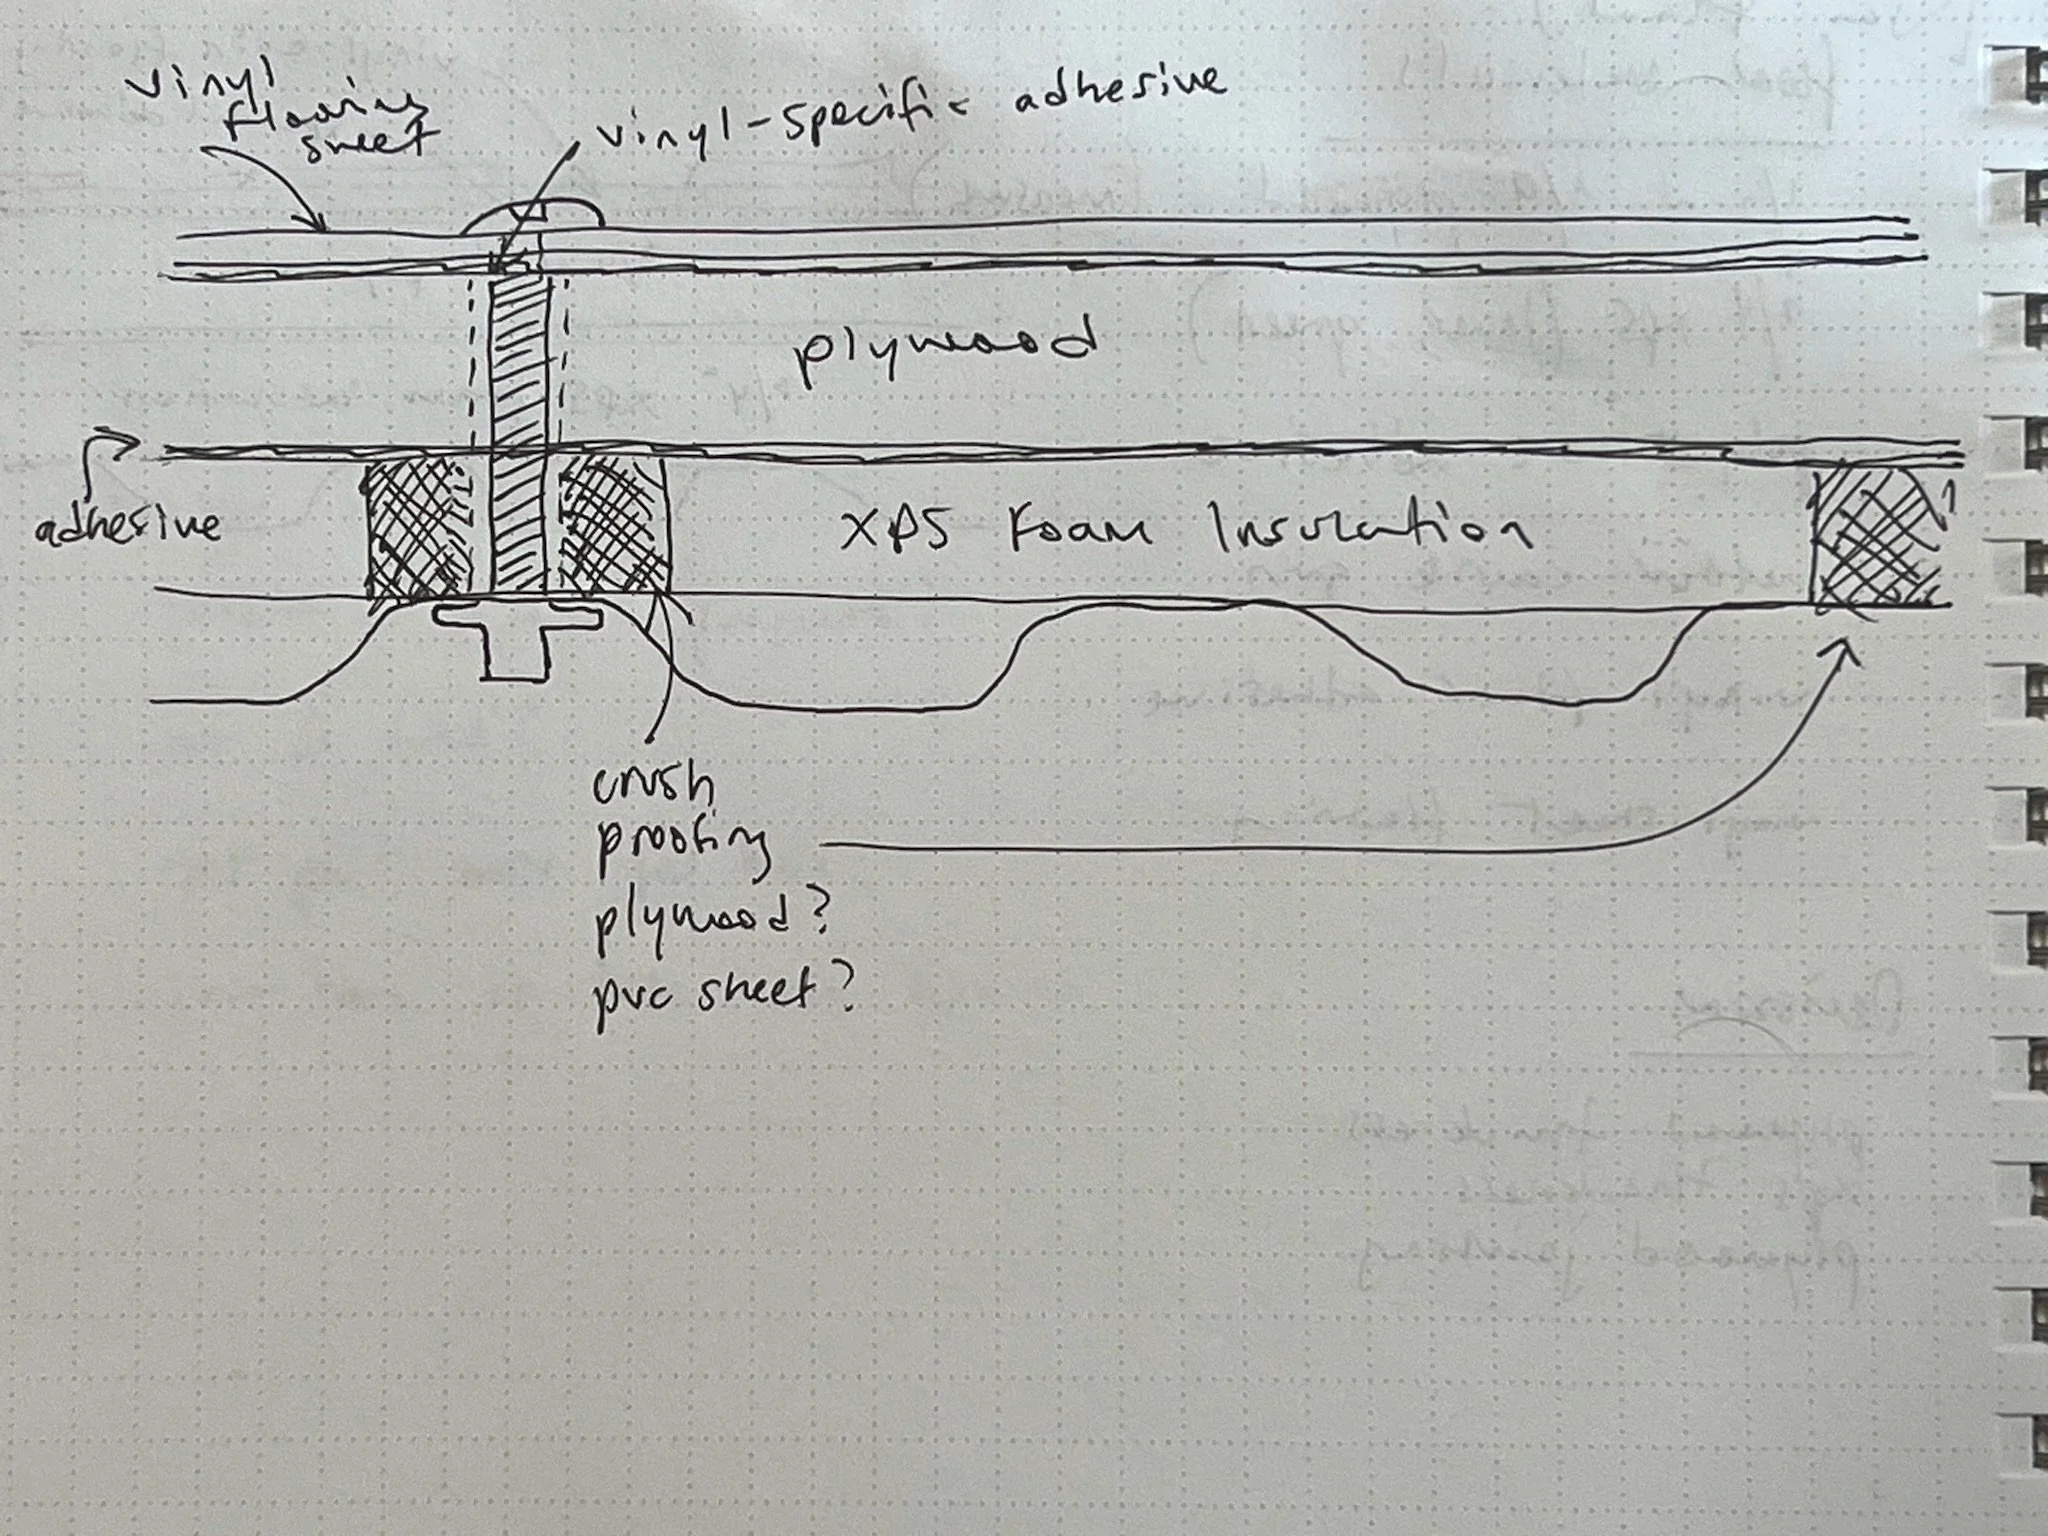 vinyl
flooring
sheet
vinyl-specific adhesive
plywood
adhesive
XPS Foam Insulation
crush
proofing
plywood?
pvc sheet?